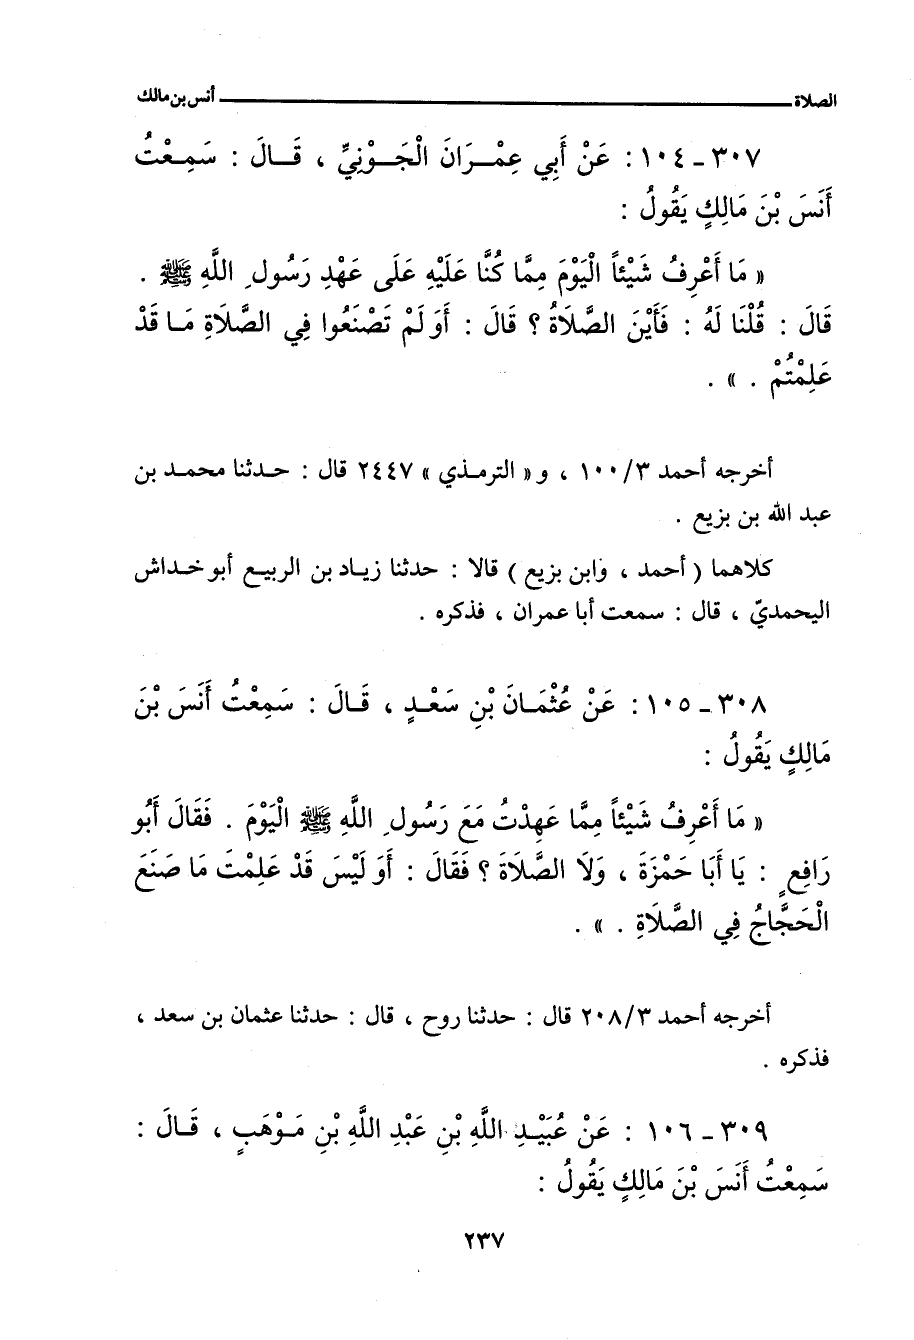 الصلاة ـــــــــــــــــــــــ أنس بن مالك
٣٠٧ ـ ١٠٤ : عَنْ أَبِي عِمْرَانَ الْجَوْنِيِّ ، قَالَ : سَمِعْتُ
أَنَسَ بْنَ مَالِكٍ يَقُولُ :
« مَا أَعْرِفُ شَيْئاً الْيَوْمَ مِمَّا كُنَّا عَلَيْهِ عَلَى عَهْدِ رَسُولِ اللَّهِ ﷺ .
قَالَ : قُلْنَا لَهُ : فَأَيْنَ الصَّلَاةُ ؟ قَالَ : أَوَ لَمْ تَصْنَعُوا فِي الصَّلَاةِ مَا قَدْ
عَلِمْتُمْ . » .
أخرجه أحمد ١٠٠/٣ ، و« الترمذي » ٢٤٤٧ قال : حدثنا محمد بن
عبد الله بن بزيع .
كلاهما ( أحمد ، وابن بزيع ) قالا : حدثنا زياد بن الربيع أبو خداش
اليحمديّ ، قال : سمعت أبا عمران ، فذكره .
٣٠٨ ـ ١٠٥ : عَنْ عُثْمَانَ بْنِ سَعْدٍ ، قَالَ : سَمِعْتُ أَنَسَ بْنَ
مَالِكٍ يَقُولُ :
« مَا أَعْرِفُ شَيْئاً مِمَّا عَهِدْتُ مَعَ رَسُولِ اللَّهِ ﷺ الْيَوْمَ . فَقَالَ أَبُو
رَافِعٍ : يَا أَبَا حَمْزَةَ ، وَلَا الصَّلَاةَ ؟ فَقَالَ : أَوَ لَيْسَ قَدْ عَلِمْتَ مَا صَنَعَ
الْحَجَّاجُ فِي الصَّلَاةِ . » .
أخرجه أحمد ٢٠٨/٣ قال : حدثنا روح ، قال : حدثنا عثمان بن سعد ،
فذكره .
٣٠٩ ـ ١٠٦ : عَنْ عُبَيْدِ اللَّهِ بْنِ عَبْدِ اللَّهِ بْنِ مَوْهَبٍ ، قَالَ :
سَمِعْتُ أَنَسَ بْنَ مَالِكٍ يَقُولُ :
٢٣٧